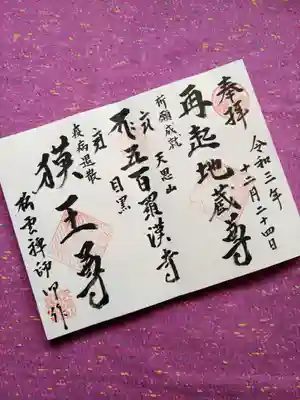 奉拝
令和三年
十二月二十四日
再起地蔵尊
祈願成就
天恩山
五百羅漢寺
目黒
疫病退散
獏王尊
松雲禅師御作